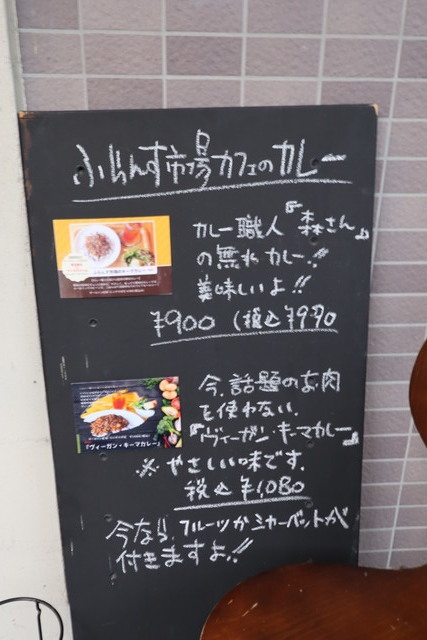 ふらんす市場カフェのカレー
カレー職人『森さん』
の無水カレー!!
美味しいよ!!
¥900 (税込¥990
今、話題のお肉
を使わない、
『ヴィーガン・キーマカレー』
※ やさしい味です。
税込 ¥1,080
今なら、フルーツか シャーベットが
付きますよ!!
『ヴィーガン・キーマカレー』